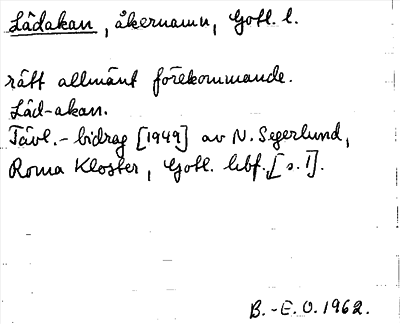 Lådakan, åkernamn, Gotl. l.
rätt allmänt förekommande.
Låd-akan.
Tävl.-bidrag [1949] av N. Segerlund,
Roma Kloster, Gotl. lebf. [s. 1].
B.-E. O. 1962.